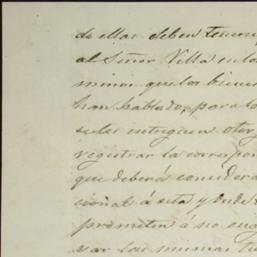 de ellas deben
al Señor Villa en lo
minas que los bienes
han hablado, para lo
se les entreguen
registrar la correspon
que deberá considera
cional á esta y
prometen á no
var los mismos